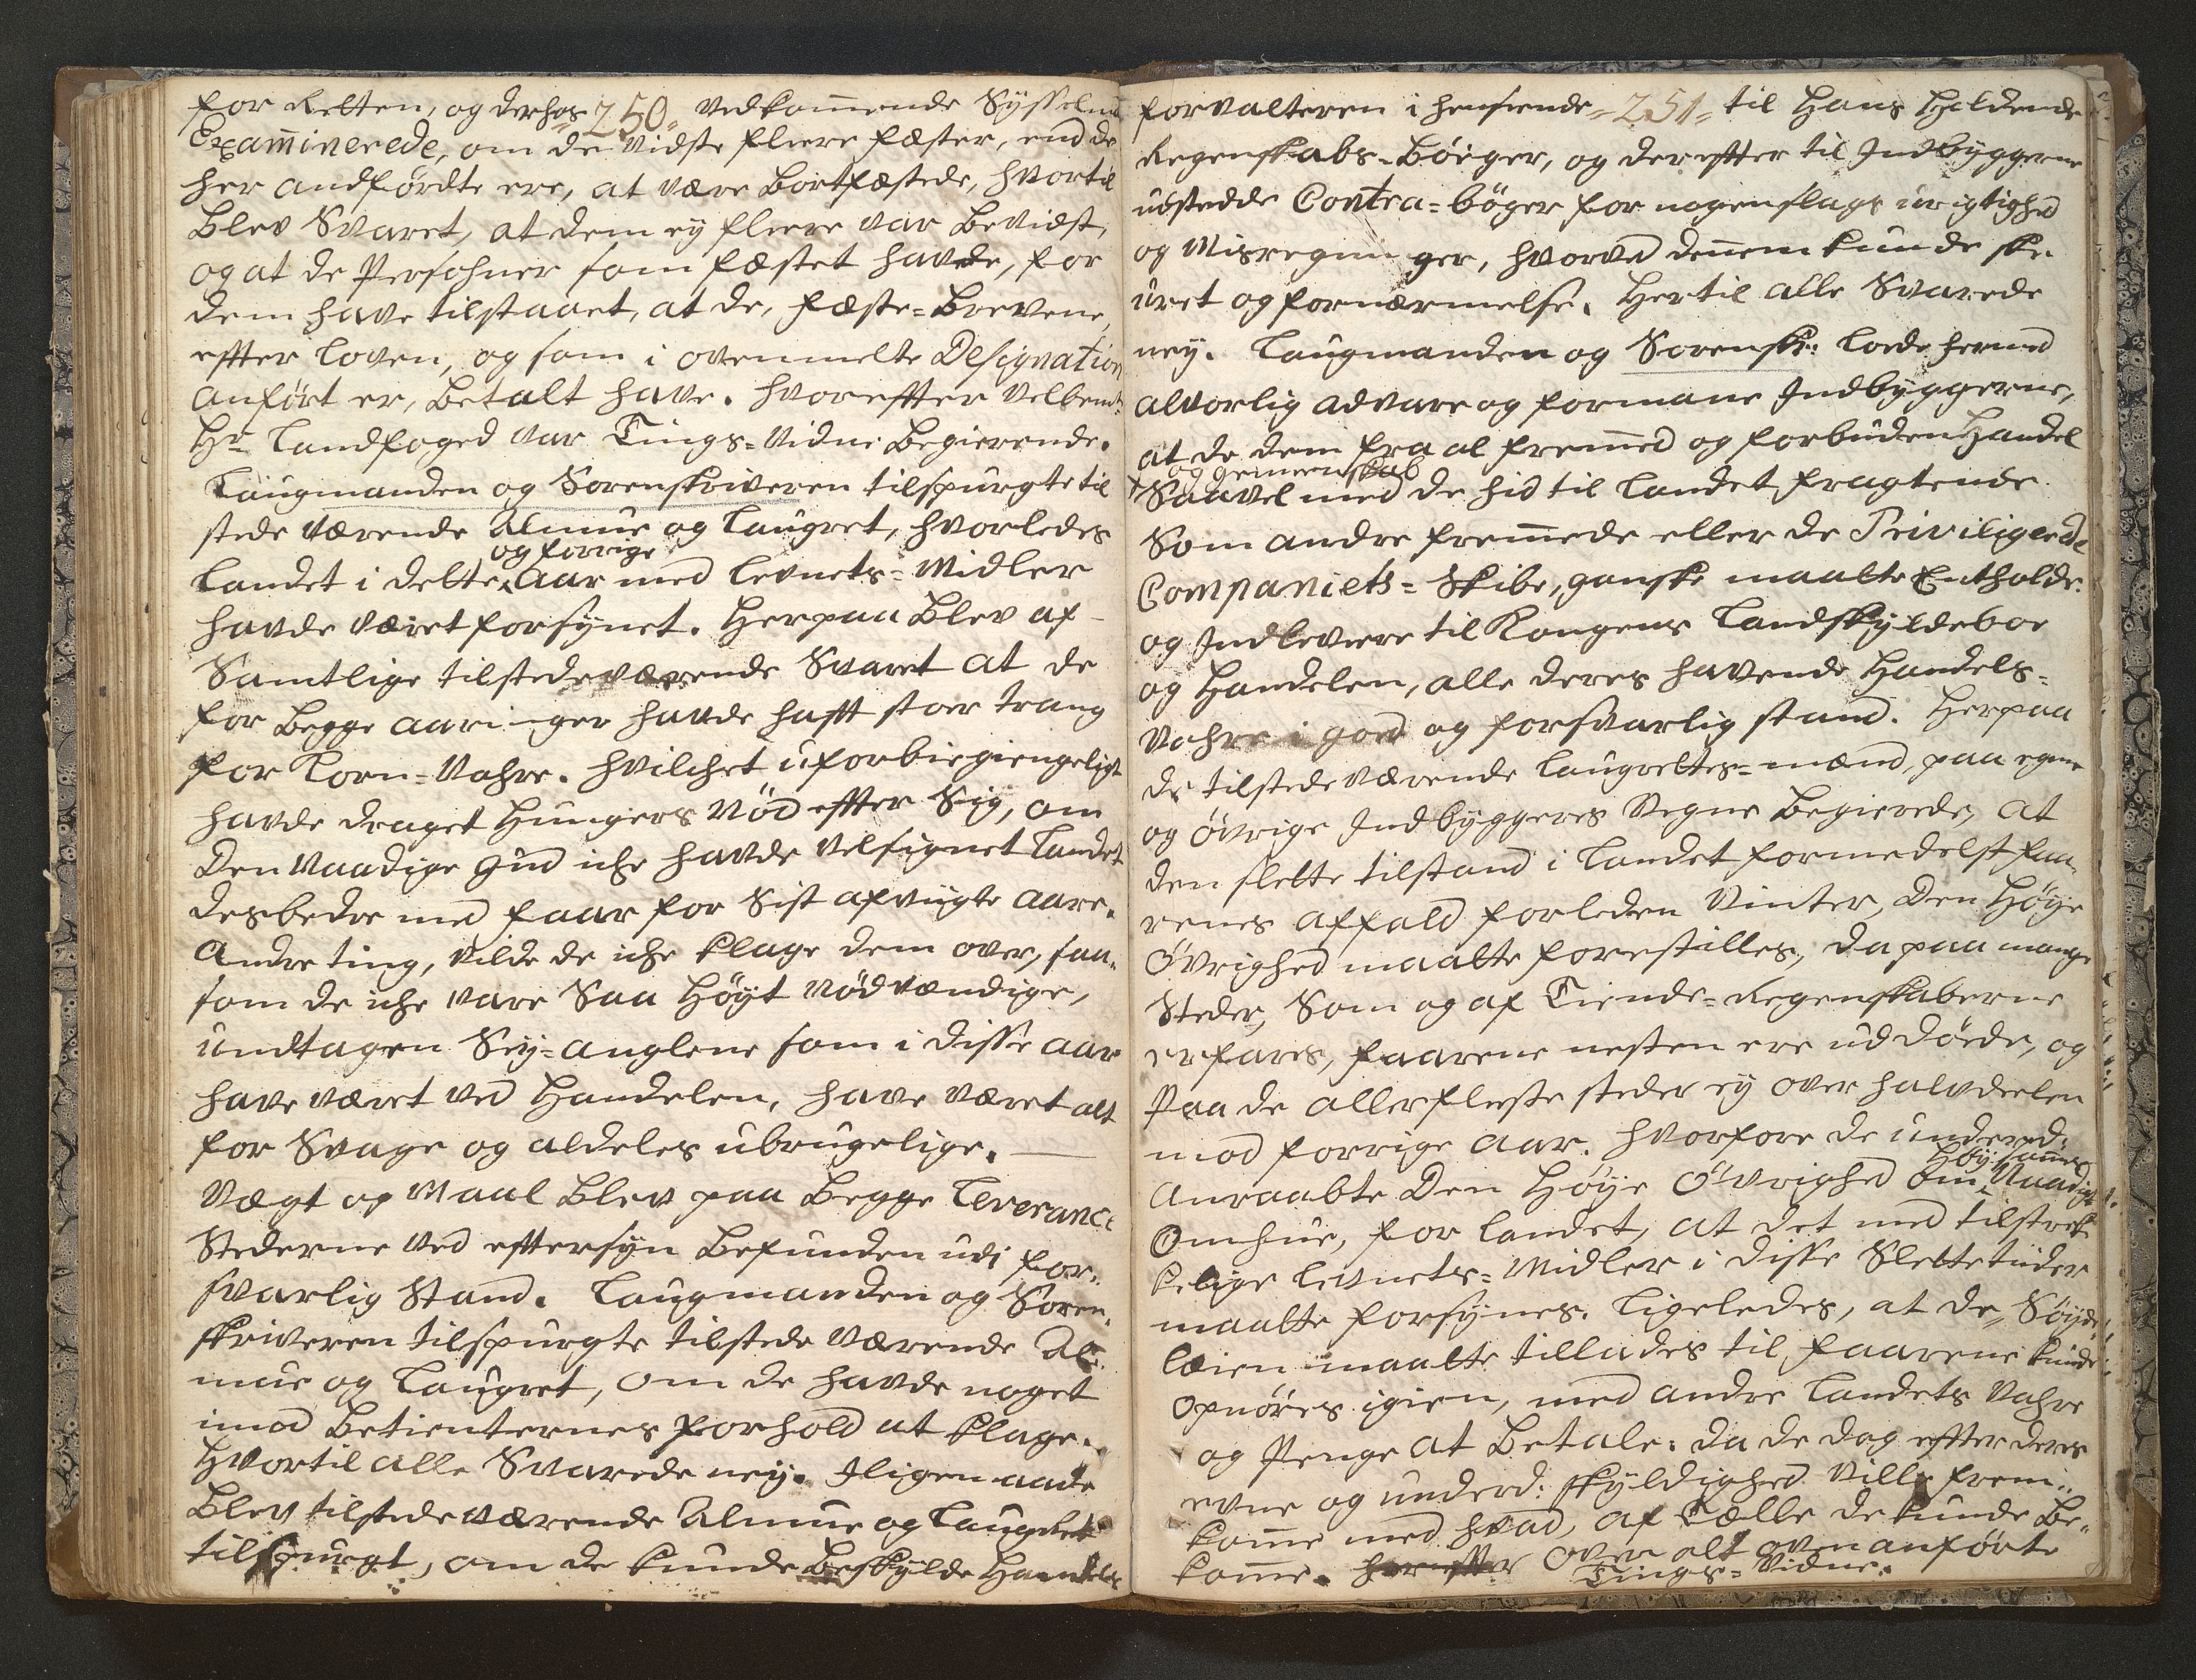 250
for Retten, og derhos vedkommende Sysselmd
Examinerede, om de vidste fleere fæster, end de
her andførdte ere, at være bortfæstede, hvortil
blev Svaret, at dem ey fleere var bevidst,
og at de Persohner som fæstet havde, for
dem have tilstaaet, at de, fæste=Brevene,
effter loven, og som i ovenmelte Designation
anført er, betalt have. hvoreffter velbemte
Hr Landfoged var Tings=Vidne begierende.
Laugmanden og Sorenskriveren tilspurgte til
stede værende Almue og Laugret, hvorledes
landet i dette og forrige Aar med levnets=Midler
havde været forsÿnet. Herpaa blev af
Samtlige tilstedeværende Svaret at de
for begge aaringer havde hafft stoer trang
for Korn=Vahre. hvilchet uforbiegiengeligt
havde draget Hungers Nöd effter Sig, om
den Naadige Gud iche havde velsignet Landet
desbedre med faar for Sist afvigte Aare.
Andre ting, vilde de iche klage dem over, saa-
som de iche vare Saa Høyt nødvændige,
undtagen Sey=anglene som i disse aar
have været ved Handelen, have været alt
for Svage og aldeles ubrugelige.
Vægt og Maal blev paa begge Leverance
Stederne ved efftersyn befunden udi for-
svarlig Stand. Laugmanden og Soren-
skriveren tilspurgte tilstede værende Al-
mue og Laugret, om de havde noget
imod Betienternes forhold at klage.
Hvortil alle Svarede ney. Iligemaade
blev tilstedeværende Almue og Laugret
tilspurgt, om de kunde beskylde Handels
251
forvalteren i henseende til Hans holdende
Regenskabs=Böiger, og dereffter til Indbyggerne
udstedde Contra=böger for nogen slags urigtighed
og Misregninger, hvorved dennem kunde ske
uret og fornærmelse. Hertil alle Svarede
ney. Laugmanden og Sorenskr: lode hermed
alvorlig advare og formane Indbyggerne,
at de dem fra al fremmed og forbuden Handel
og gemeenskab
Saavel med de hid til Landet fragtende
Som andre fremmede eller de Priviligerede
Compagniets=Skibe, ganske maatte Entholde.
og Indlevere til Kongens Landskyldeboe
og Handelen, alle deres havende Handels=
Vahre i goed og forsvarlig stand. Herpaa
de tilstedeværende Laugrettes=mænd, paa egne
og Øvrige Indbyggeres Vegne begierede, at
den slette tilstand i Landet formedelst faa-
renes affald forleden Vinter, den Høye
Øvrighed maatte forestilles, da paa mange
Steder, Som og af Tiende=Regenskaberne
erfares, faarene nesten ere uddøede, og
Paa de allerfleste steder ey over halvdeelen
mod forrige Aar. hvorfore de underd:
anraabte Den Høye Øvrighed om Høystammes Naadigst
Omhue, for Landet, at det med tilstrek-
kelige levnets=Midler i disse Slette tiider
maatte forsynes. Ligeledes, at de Søyde
læien maatte tillades til faarene kunde
opnöres igien, med andre Landets Vahre
og Penge at betale: da de dog effter deres
evne og underd: skyldighed ville frem-
komme med hvad, af Tælle de kunde be-
komme. over alt ovenanførte
Tings=Vidne.